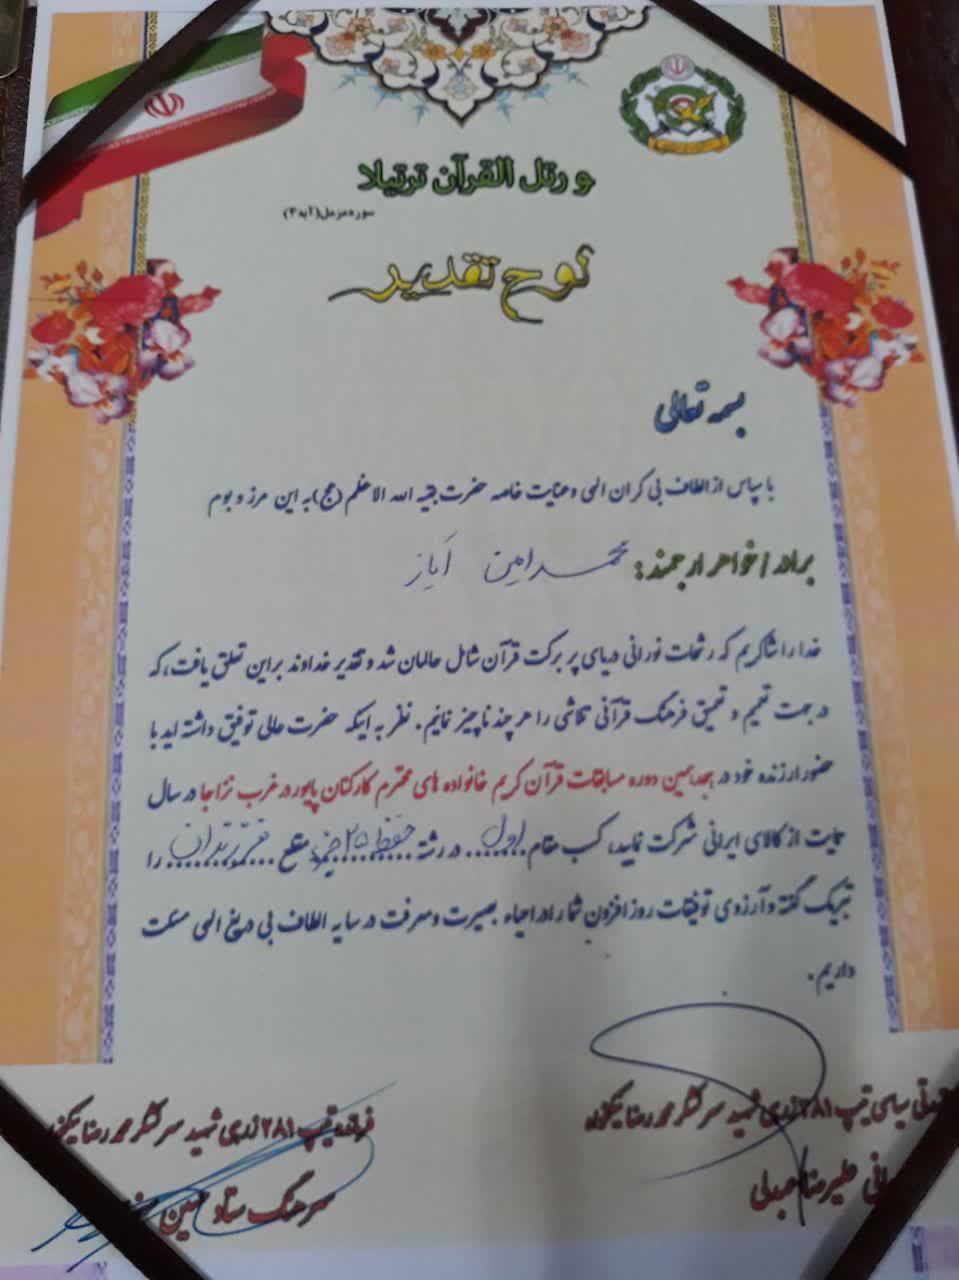 و رتل القرآن ترتیلا
سوره مزمل(آیه ۴)
لوح تقدیر
بسمه تعالی
با سپاس از الطاف بی کران الهی و عنایت خاصه حضرت بقیه الله الاعظم (عج) به این مرز و بوم
برادر / خواهر ارجمند: محمد امین آیاز
خدا را شاکریم که رشحات نورانی دریای پر برکت قرآن شامل حالمان شد و تقدیر خداوند براین تعلق یافت، که
در جهت تعمیم و تعمیق فرهنگ قرآنی تلاشی را هر چند ناچیز نمائیم. نظر به اینکه حضرت عالی توفیق داشته اید با
حضور ارزنده خود در هجدهمین دوره مسابقات قرآن کریم خانواده های محترم کارکنان پایور در غرب نزاجا در سال
حمایت از کالای ایرانی شرکت نمایید، کسب مقام اول در رشته حفظ ۲۵ جزء مقطع فرزندان را
تبریک گفته و آرزوی توفیقات روز افزون شما را در احیاء بصیرت و معرفت در سایه الطاف بی دریغ الهی مسئلت
داریم.
سیاسی تیپ ۲۸۱ زرهی شهید سرلشکر محمد رضا نیکخواه
علیرضا عبدلی
فرمانده تیپ ۲۸۱ زرهی شهید سرلشکر محمد رضا نیکخواه
سرهنگ ستاد حسین